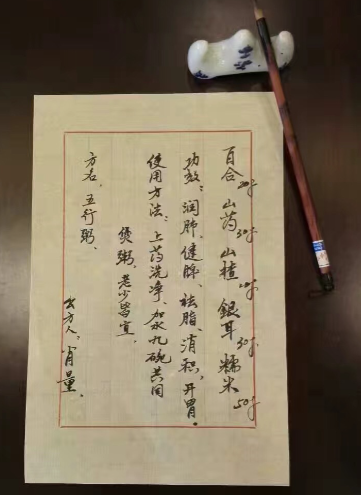 百合20g 山药30g 山楂10g 銀耳30g 糯米50g
功效：润肺、健脾、祛脂、消积、开胃。
使用方法：上药洗净、加水九碗共同
煲粥、老少皆宜、
方名、五行粥、
出方人、肖量、